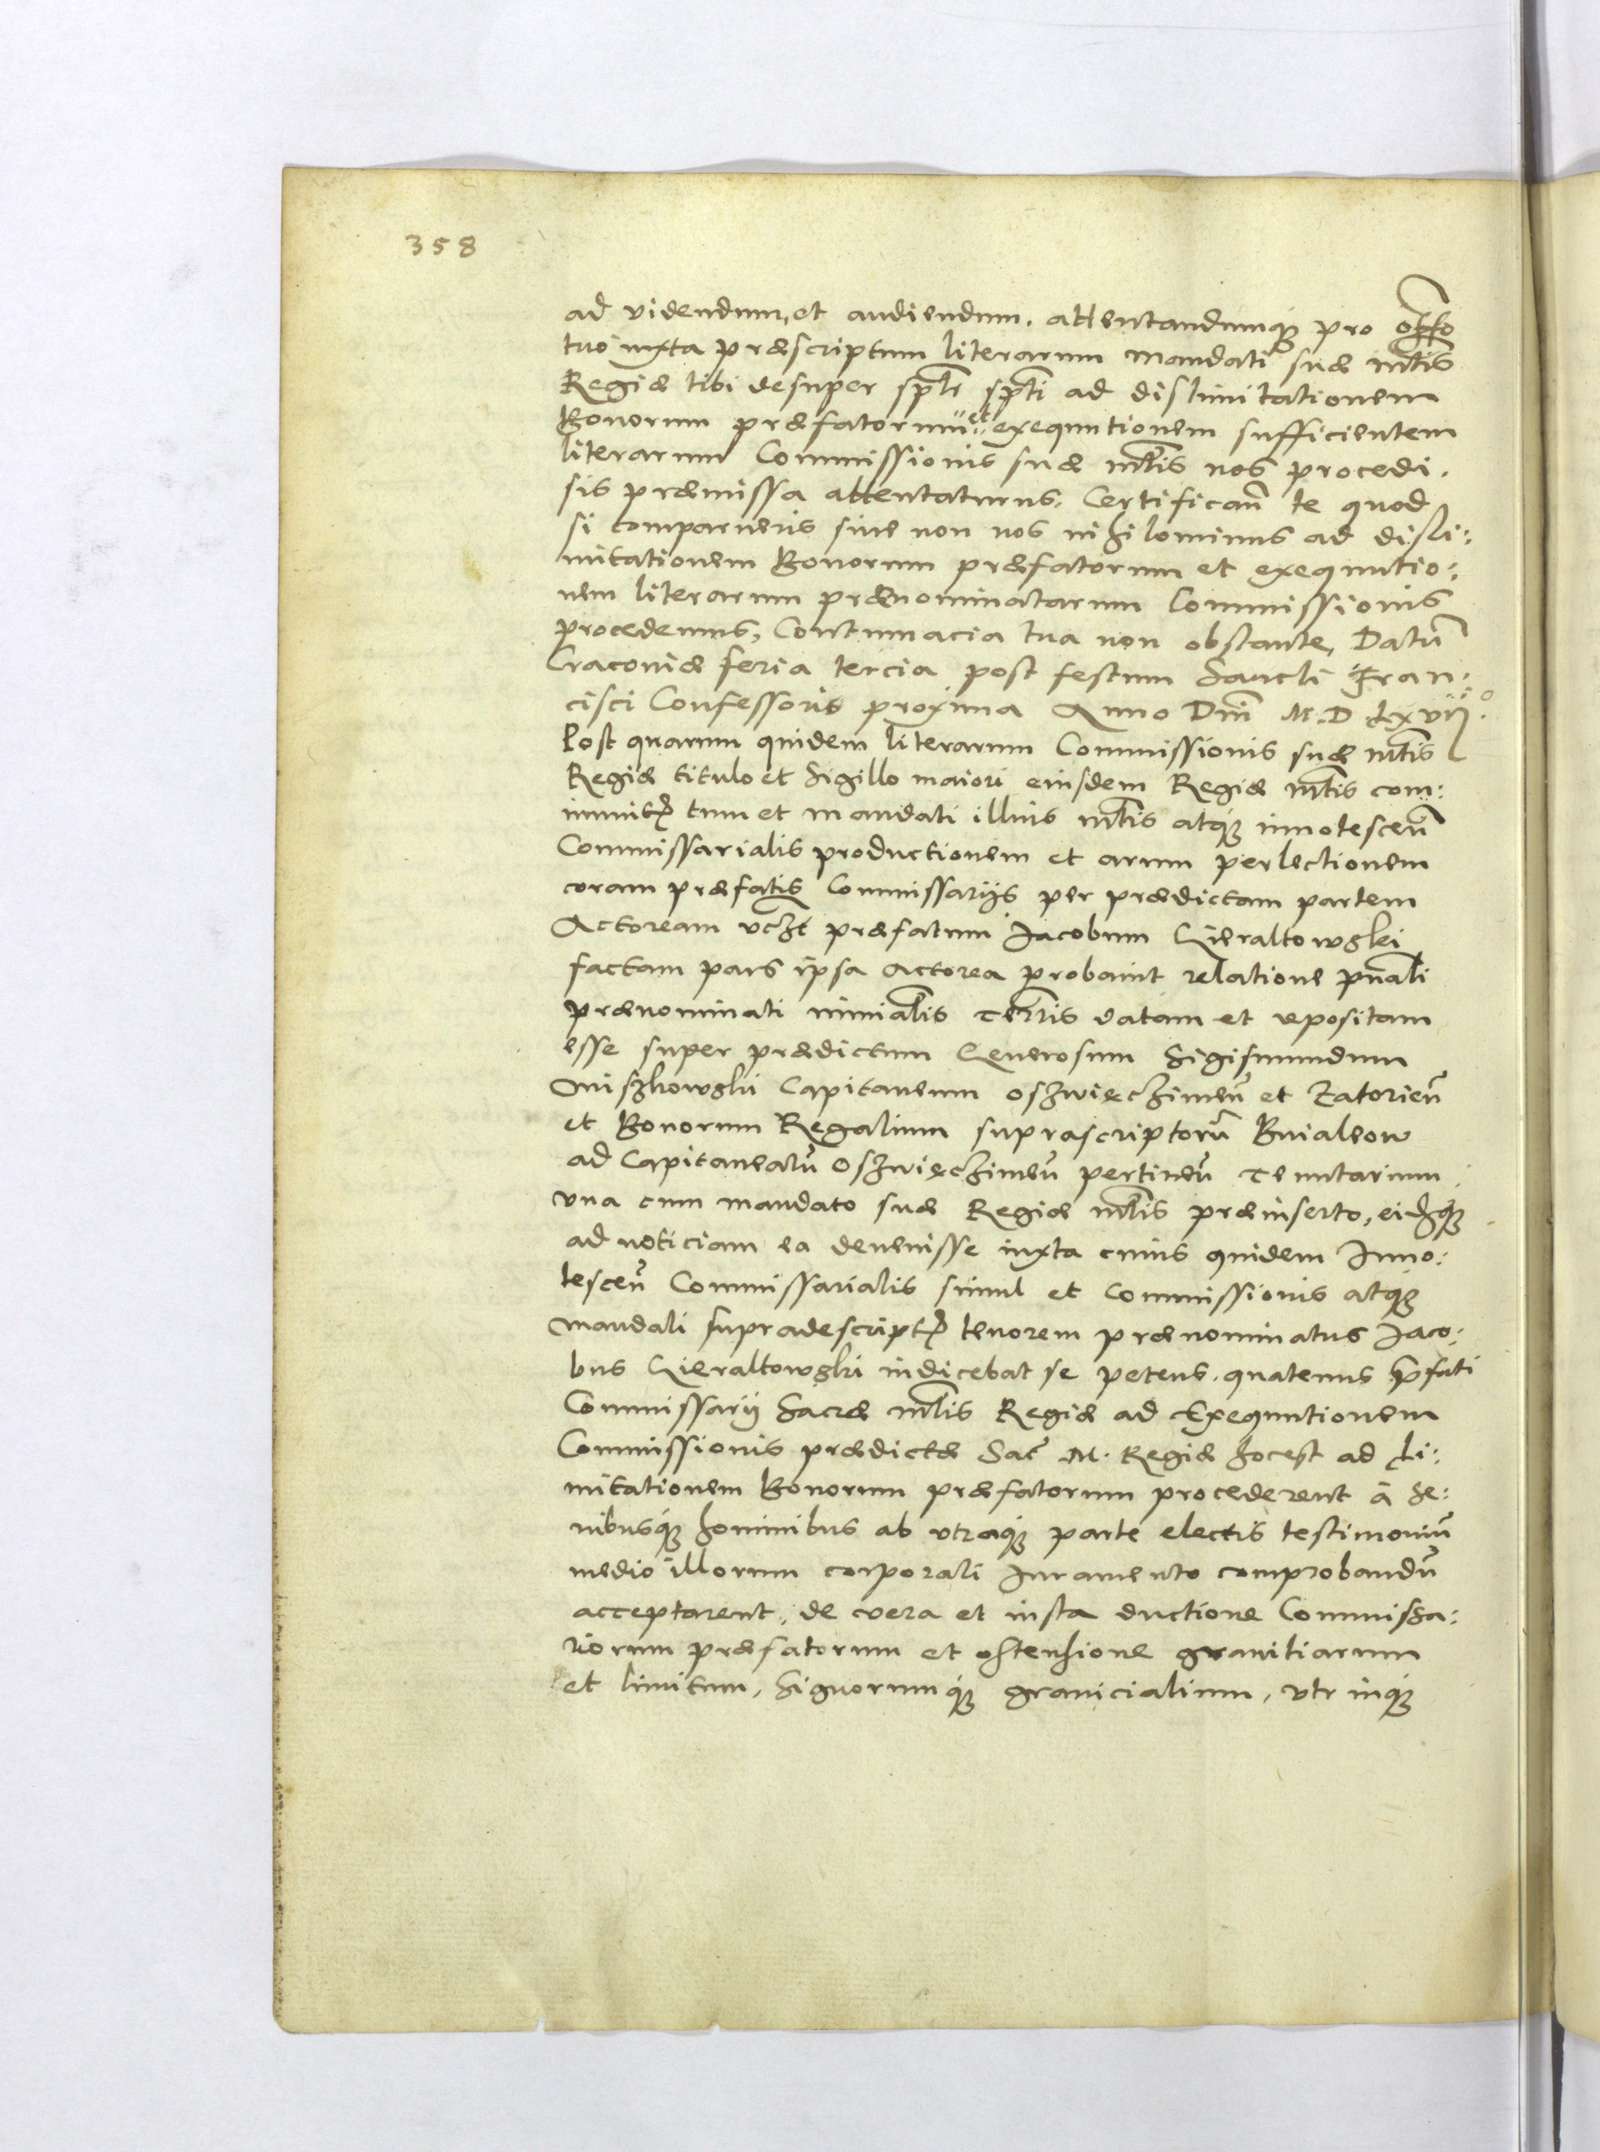 358
ad videndum, et audiendum. attentandumq̃ pro offo
tuo iuxta præscriptum literarum mandati suæ mtis
Regiæ tibi desuper spltr spti ad dislimitationem
Bonorum præfatorum et exequutionem sufficientem
literarum Commissionis suæ mtis nos procedi.
sis præmissa attentaturus. Certifican̄ te quod
si comparueris siue non nos nihilominus ad disli:
mitationem Bonorum præfatorum et exequutio:
nem literarum prænominatarum Commissionis
procedemus, Contumacia tua non obstante, Datū
Cracoviæ feria tercia post festum Sancti Fran:
cisci Confessoris proxima Anno Dni M.D Lxvij.o
Post quarum quidem literarum Commissionis suæ mtis
Regiæ titulo et Sigillo maiori eiusdem Regiæ mtis com:
munitꝝ tum et mandati illius mtis atq̃ innotescen̄
Commissarialis productionem et arum perlectionem
coram præfatis Commissarijs per prædictam partem
Actoream vczt præfatum Jacobum Gieraltowskj
factam pars ipsa actorea probauit relatione pnali
prænominati minialis terris datam et repositam
esse super prædictum Generosum Sigismundum
Miszkowski Capitaneum oszwięczimen̄ et Zatorien̄
et Bonorum Regalium suprascriptorū Bvialeow
ad Capitaneatū Oszwięczimen̄ pertinen̄ tenutarium.
vna cum mandato suæ Regiæ mtis præinserto, eidq̃
ad noticiam ea devenisse iuxta cuius quidem Inno:
tescen̄ Commissarialis simul et Commissionis atq̃
mandati supradescriptꝝ tenorem prænominatus Jaco:
bus Gieraltowski indicebat se petens. quatenus p̄fati
Commissarij Sacræ mtis Regiæ ad Exequutionem
Commissionis prædictæ Sac̄ M. Regiæ hocest ad Li:
mitationem Bonorum præfatorum procederent à Se:
nibusq̃ hominibus ab vtraq̃ parte electis testimoniū
medio illorum corporali Juramento comprobandū
acceptarent, de vera et iusta ductione Commissa:
riorum præfatorum et ostensione granitiarum
et limitum, Signorumq̃ granicialium, vtrinq̃